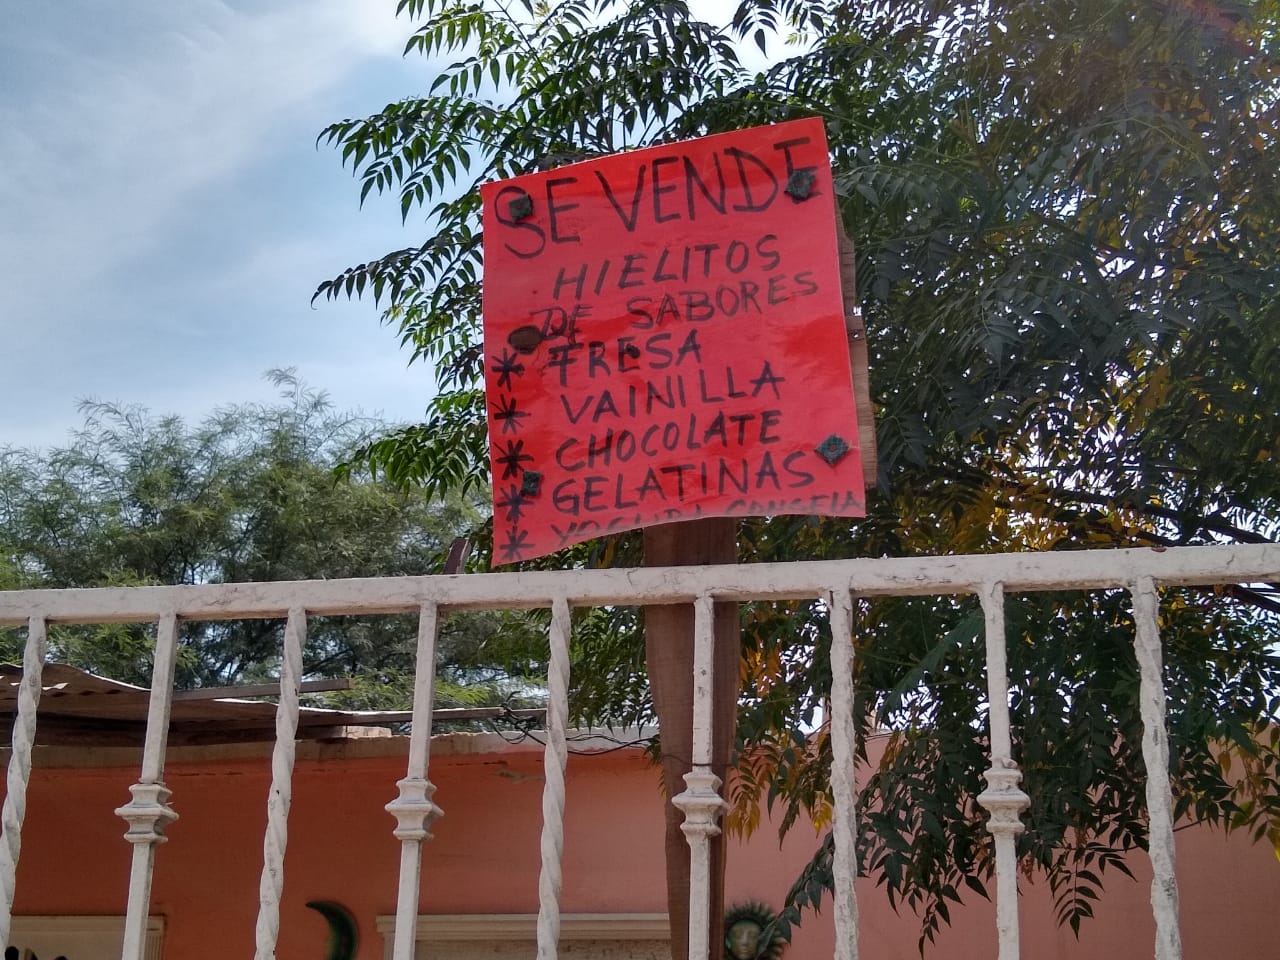 SE VENDE
HIELITOS
DE SABORES
* FRESA
* VAINILLA
* CHOCOLATE
* GELATINAS
*